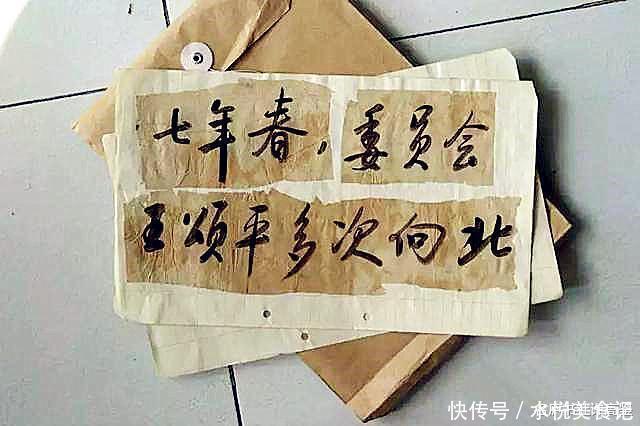 七年春，委员会
王颂平多次向北
快传号／水悦美食记